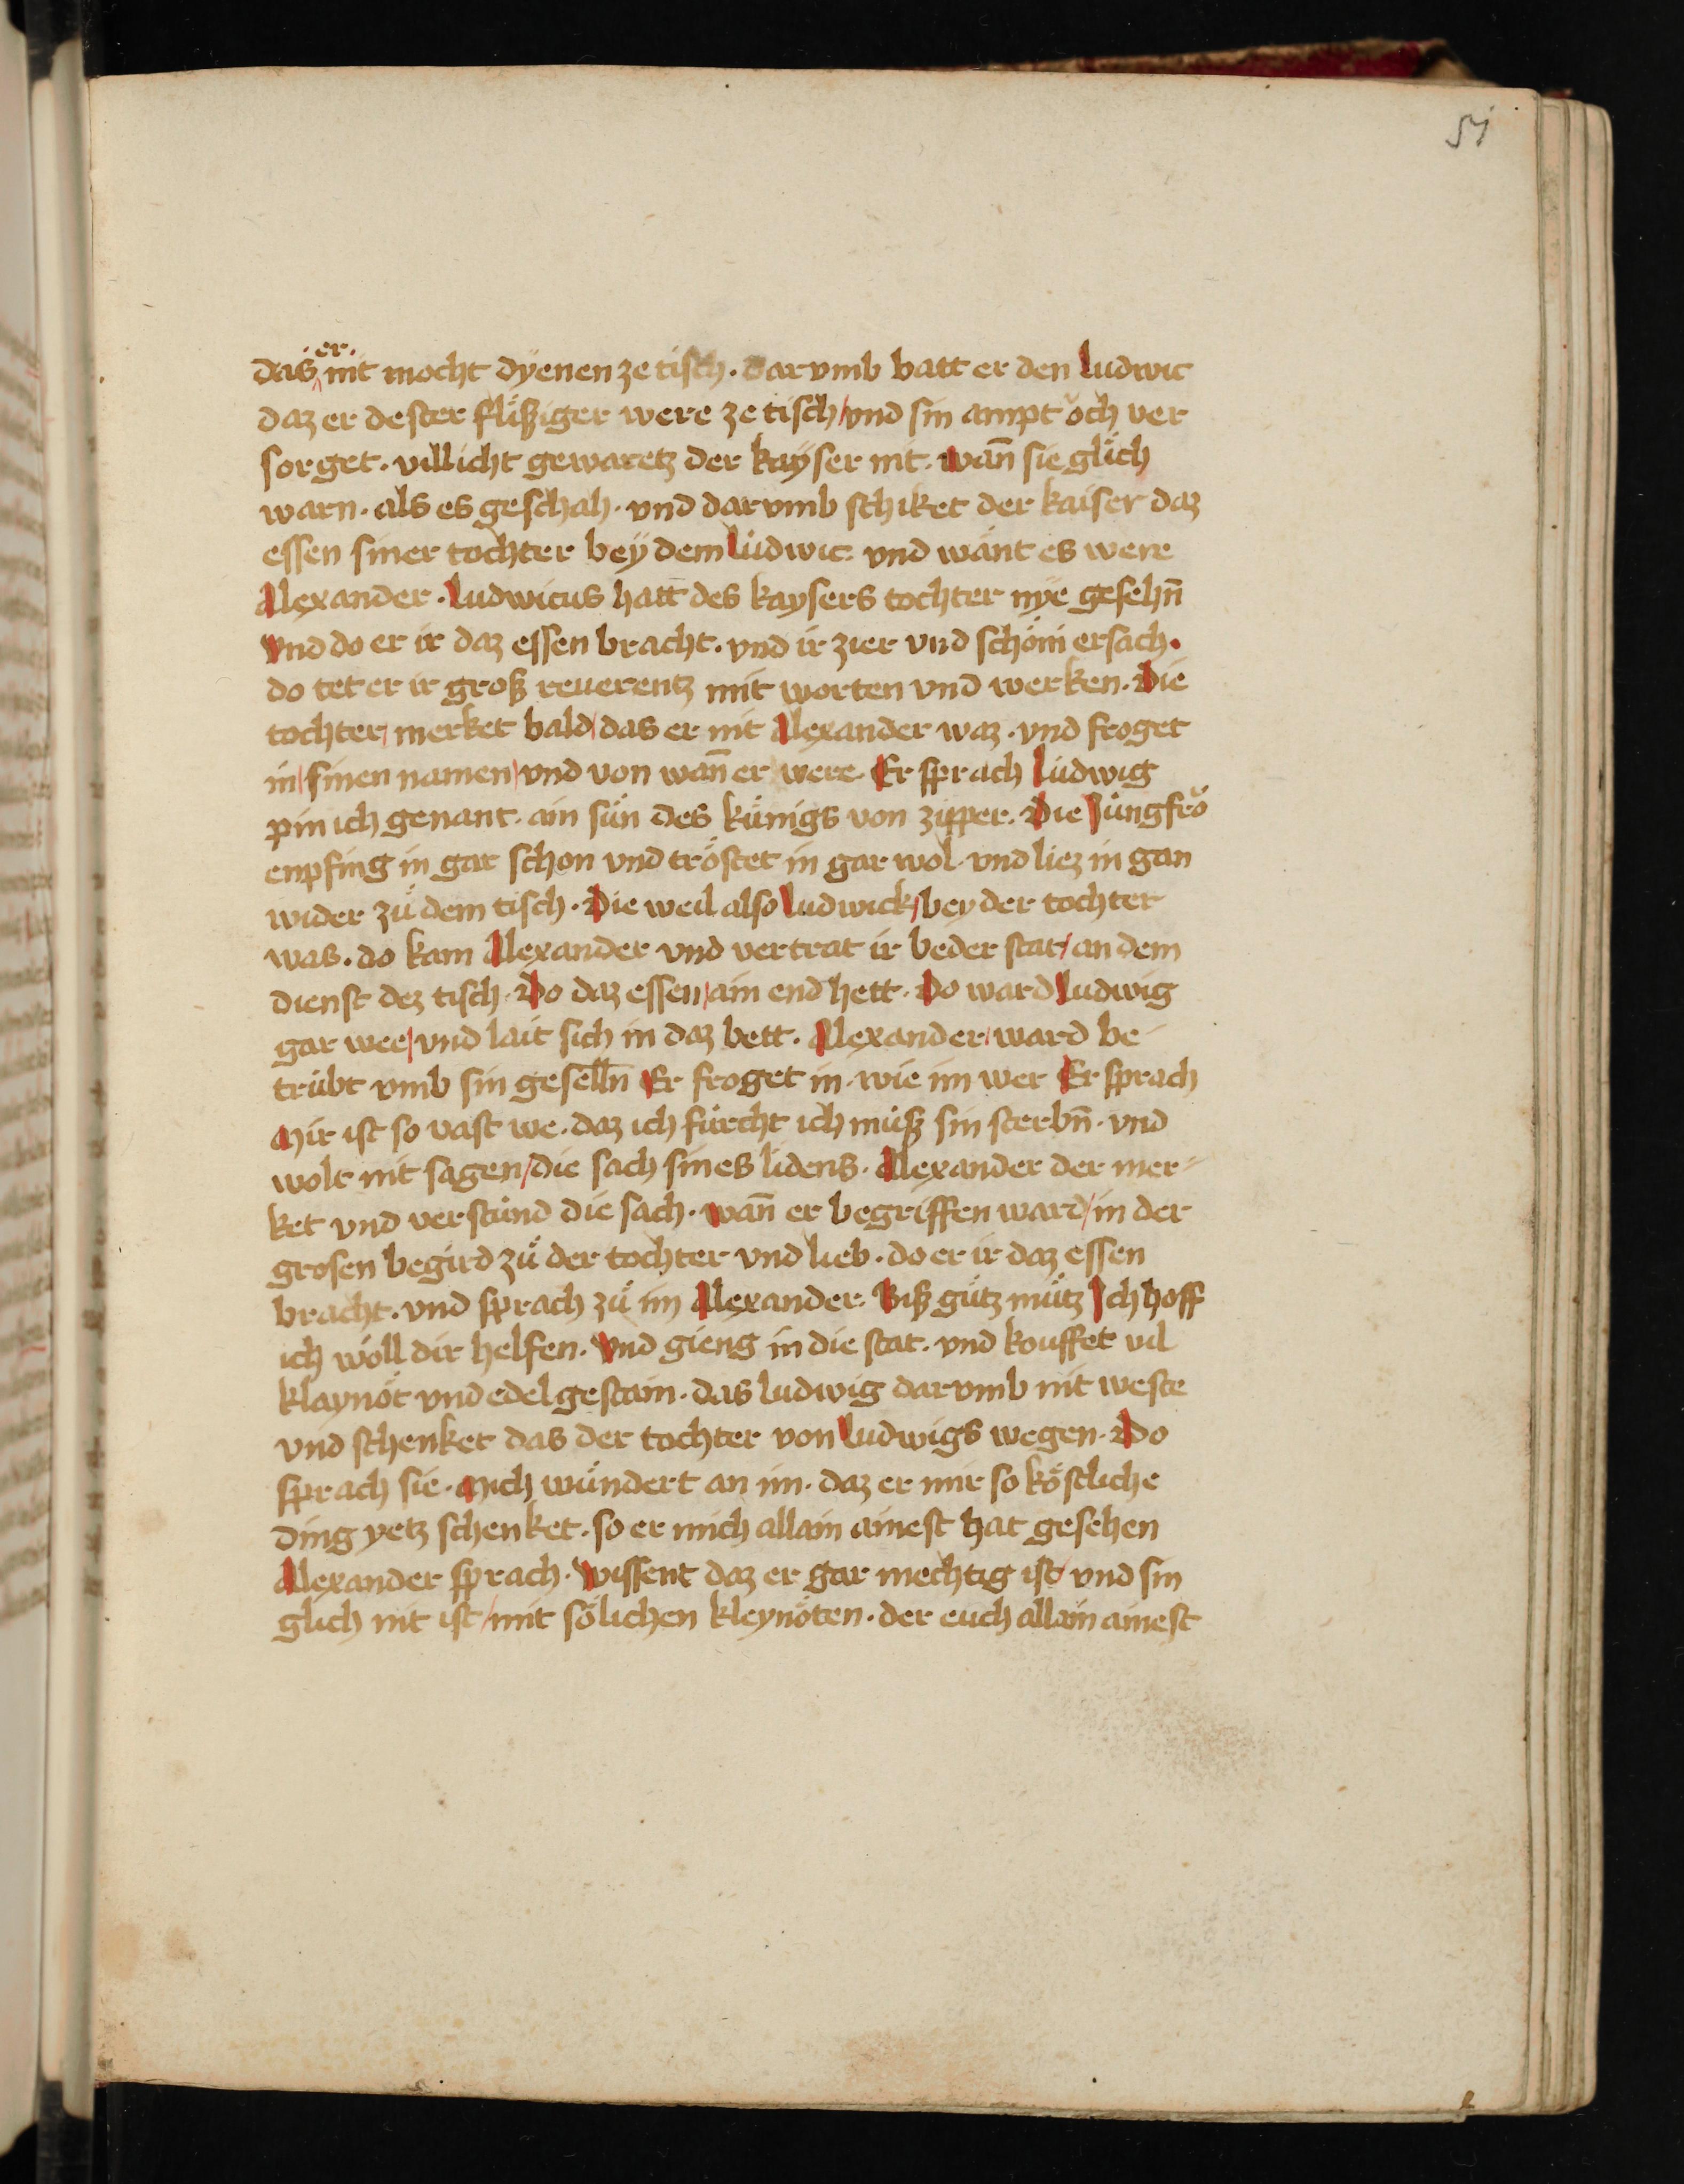 51
das er nit mocht dyenen ze tisch · Darvmb batt er den Ludwic
daz er dester flißiger were ze tisch / vnd sin ampt och ver
sorget · villicht gewaretz der kayser nit · wan̄ sie glich
warn · als es geschah · vnd darvmb schiket der kaiser daz
essen siner tochter bey dem Ludwic · vnd wänt es were
Alexander · Ludwicus hatt des kaysers tochter nye gesehn̄
Vnd do er ir daz essen bracht · vnd ir zier vnd schöni ersach ·
do tet er ir groß reuerentz mit worten vnd werken · Die
tochter / merket bald / das er nit Alexander waz · vnd froget
in / sinen namen / vnd von wan̄ er were · Er sprach Ludwig
pin ich genant · ain sün des künigs von zipper · Die Jungfrö
enpfing in gar schon vnd tröstet in gar wol · vnd liez in gan
wider zů dem tisch · Die weil also Ludwick / bey der tochter
was · do kam Alexander vnd vertrat ir beder stat / an dem
dienst dez tisch · Do daz essen / ain end hett · Do ward Ludwig
gar wee / vnd lait sich in daz bett · Alexander / ward be-
trübt vmb sin geselln̄ Er froget in · wie im wer Er sprach
Mir ist so vast we · daz ich fürcht ich müß sin sterbn̄ · vnd
wolt nit sagen / die sach sines lidens · Alexander der mer-
ket vnd verstund die sach · wan̄ er begriffen ward / in der
grosen begird zů der tochter vnd lieb · do er ir daz essen
bracht · vnd sprach zů im Alexander · Biß gůtz můtz Ich hoff
ich wöll dir helfen · Vnd gieng in die stat · vnd kouffet vil
klaynöt vnd edel gestain · das ludwig darvmb nit weste
vnd schenket das der tochter von Ludwigs wegen · Do
sprach sie · Mich wundert an im · daz er mir so köstliche
ding yetz schenket · so er mich allain ainest hat gesehen
Alexander sprach · Wissent daz er gar mechtig ist / vnd sin
glich nit ist / mit sölichen kleynöten · der euch allain ainest